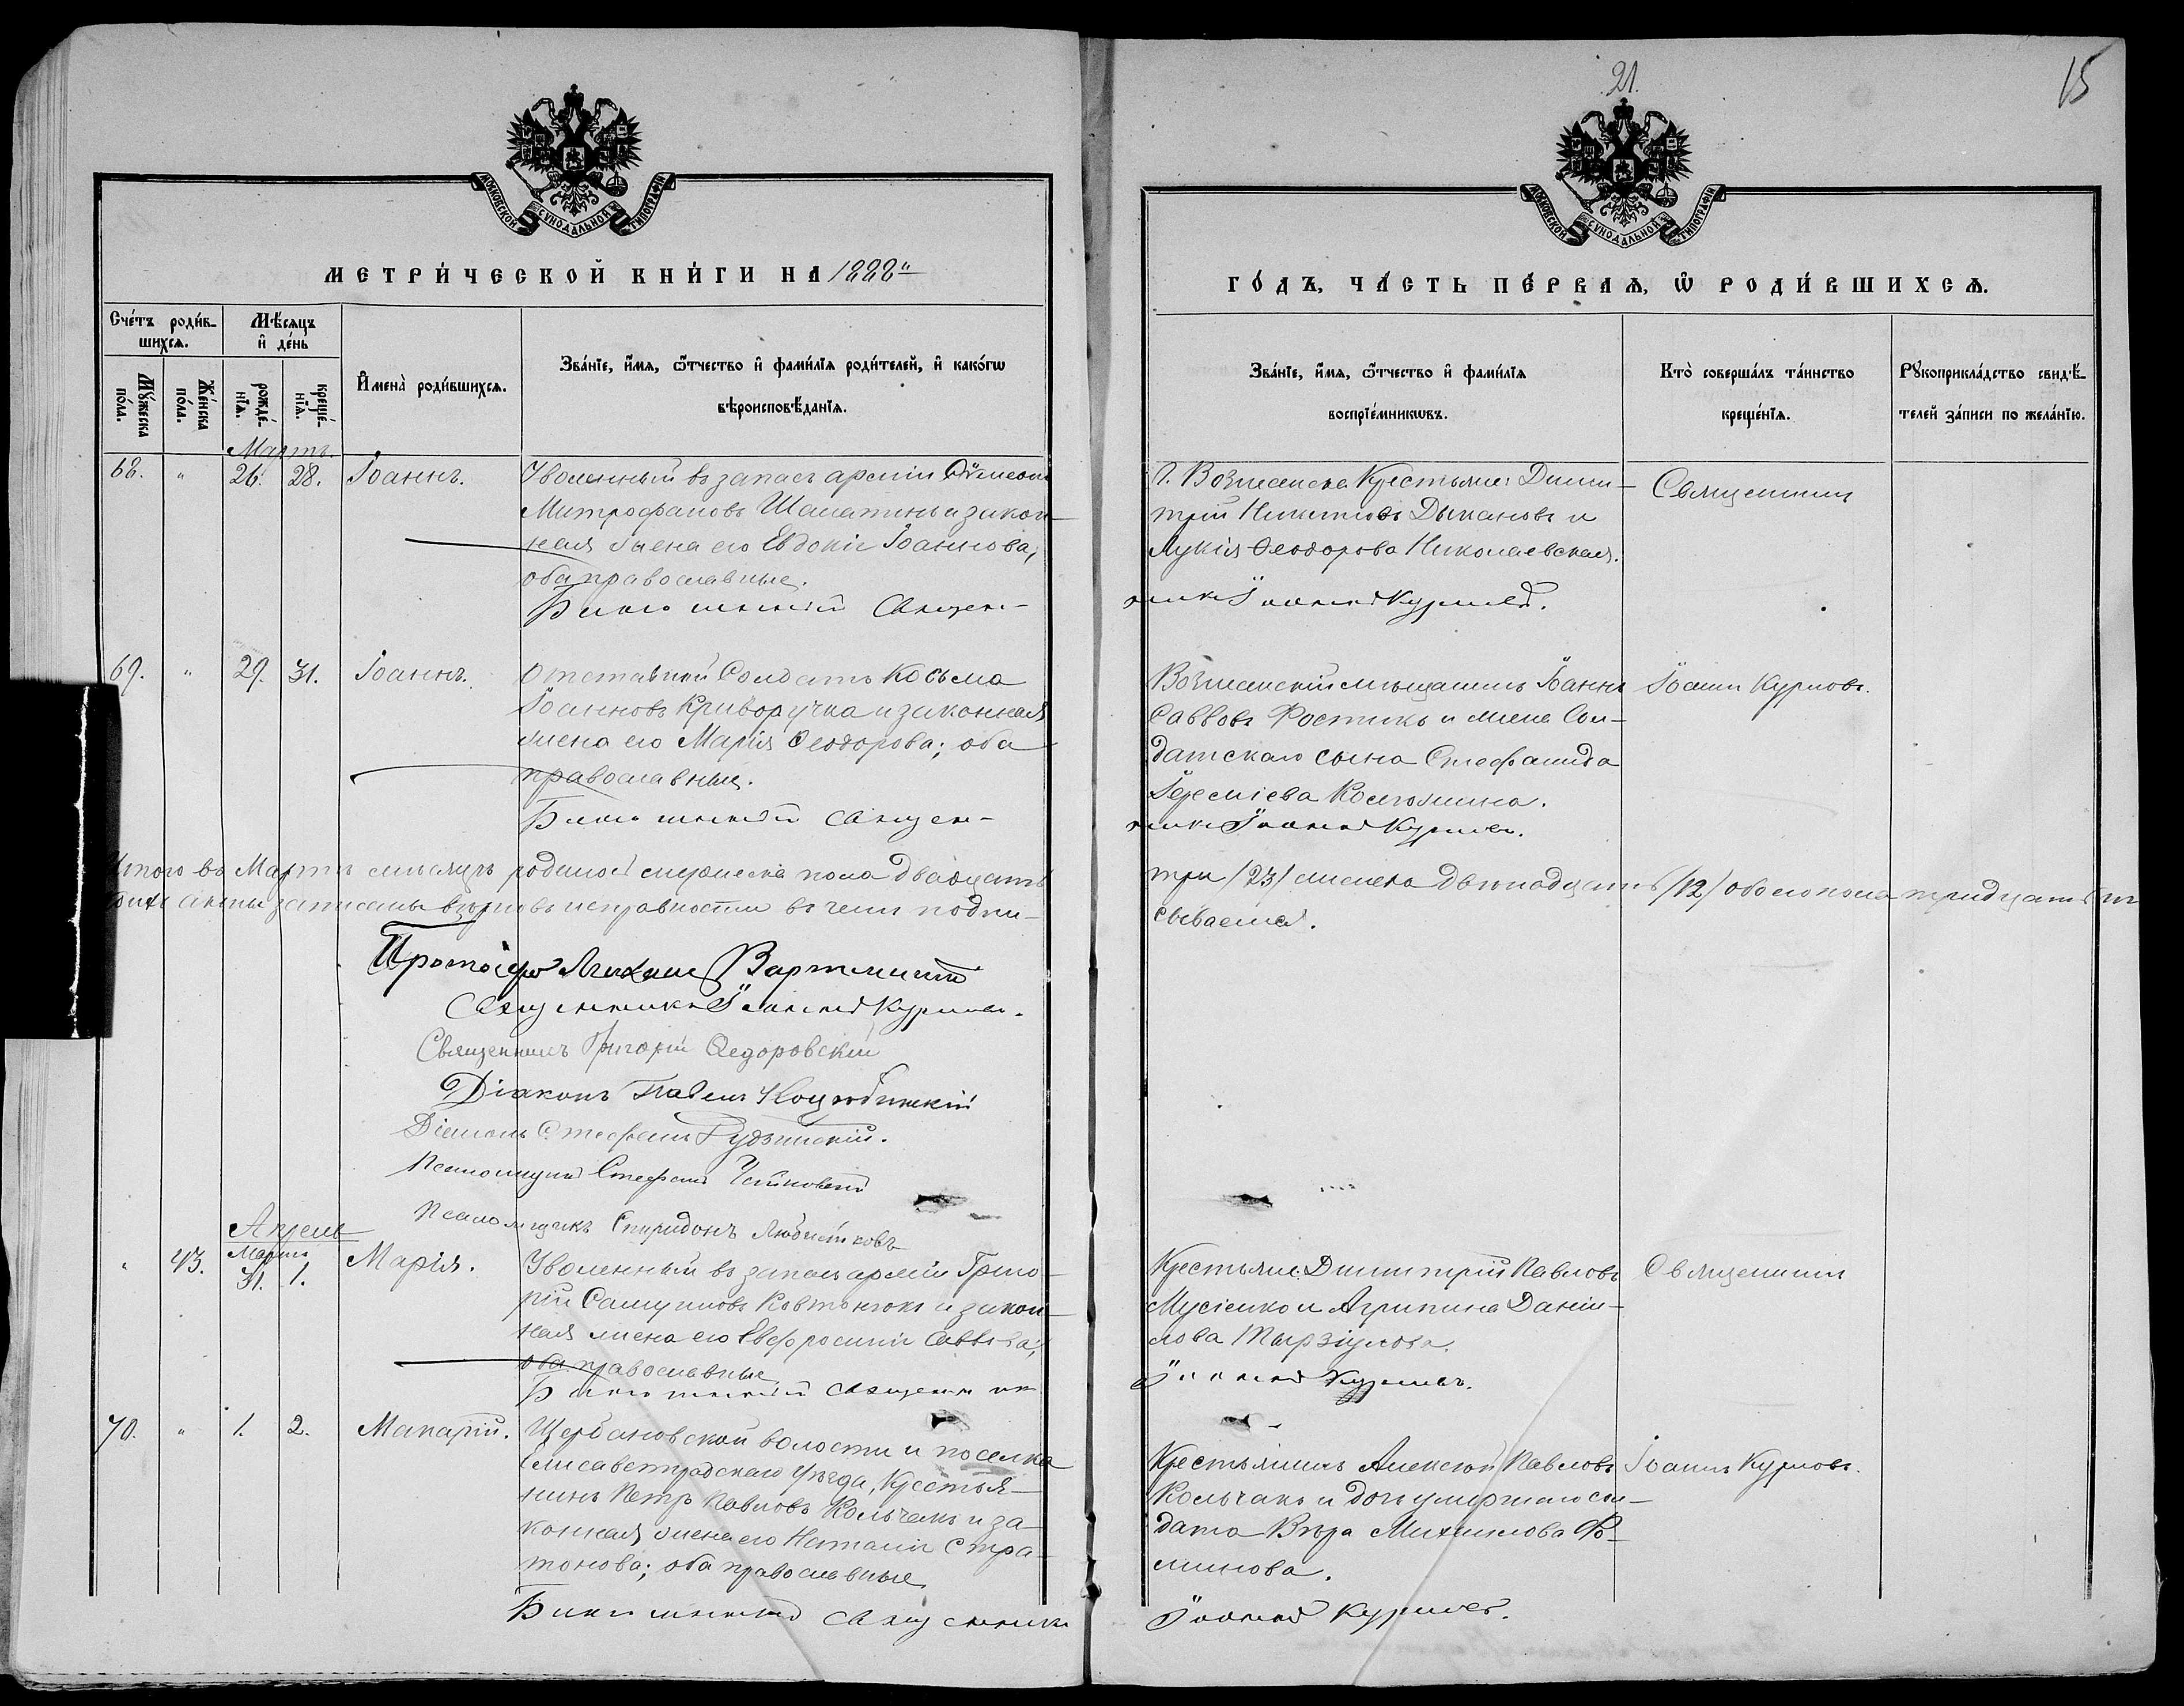 21.
15
МОСКОВСКОЙ СУНОДАЛЬНОЙ ТИПОГРАФІИ
МОСКОВСКОЙ СУНОДАЛЬНОЙ ТИПОГРАФІИ
МЕТРИ́ЧЕСКОЙ КНИ́ГИ НА 1888й
ГО́ДЪ, ЧА́СТЬ ПЕ́РВАѦ, Ѡ҆ РОДИ́ВШИХСѦ.
Сче́тъ роди́в-
шихсѧ.
Мѣ́сѧцъ
и҆ де́нь
Мꙋ́жеска
по́ла.
Же́нска
по́ла.
рожде́-
нїѧ.
креще́-
нїѧ.
И҆мена̀ роди́вшихсѧ.
Зва́нїе, и҆́мѧ, ѻ҆́тчество и҆ фами́лїѧ роди́телей, и҆ како́гѡ
вѣроисповѣ́данїѧ.
Зва́нїе, и҆́мѧ, ѻ҆́тчество и҆ фами́лїѧ
воспрїе́мникѡвъ.
Кто̀ соверша́лъ та́инство
креще́нїѧ.
Рꙋкоприкла́дство свидѣ́-
телей за́писи по жела́нїю.
Мартъ.
68. " 26. 28. Іоаннъ. Уволенный въ запасъ арміи Сѵмеонъ
Митрофановъ и закон-
ная жена его Евдокія Іоаннова,
оба православные.
священ-
Г. Вознесенска Крестьяне: Дими-
трій Никитовъ Дыкановъ и
Лукія Ѳеодорова Николаевская.
никъ Іоаннъ Курловъ.
Священникъ
69. " 29. 31. Іоаннъ. Отставной Солдатъ Косьма
Іоанновъ Криворучка и законная
жена его Марія Ѳеодорова; оба
православные.
священ-
Вознесенскій мѣщанинъ Іоаннъ
Саввовъ Ростикъ и жена Сол-
датскаго сына Стефанида
Іереміева
никъ Іоаннъ Курловъ.
Іоаннъ Курловъ.
Итого въ Мартѣ мѣсяцѣ родилось мужеска пола двадцать
три /23/ женска двѣнадцать /12/ обоего пола тридцать
акты записаны въ исправности въ чемъ подпи-
сываемся.
Протоіерей Михаилъ
Священникъ Іоаннъ Курловъ.
Священникъ Григорій Ѳедоровскій
Діаконъ Павелъ Коцюбинскій
Діаконъ Стефанъ Гудзинскій.
Псаломщикъ Стефанъ Чайковскій
Псаломщикъ Спиридонъ
Апрель
" 43. Марта 31. 1. Марія. Уволенный въ запасъ арміи Григо-
рій Самуиловъ Ковтонюкъ и закон-
ная жена его Евфросинія Саввова,
оба православные
священникъ
Крестьяне: Димитрій Павловъ
Мусіенко и Агрипина Даніи-
лова
Іоаннъ Курловъ.
Священникъ
70. " 1. 2. Макарій. Щербановской волости и поселка
Елисаветградскаго уѣзда, Крестья-
нинъ Петръ Павловъ Кольчакъ и за-
конная жена его Наталія Стра-
тонова; оба православные
священникъ
Крестьянинъ Алексѣй Павловъ
Кольчакъ и дочь умершаго сол-
дата Вѣра Михаилова Фо-
минова.
Іоаннъ Курловъ.
Іоаннъ Курловъ.